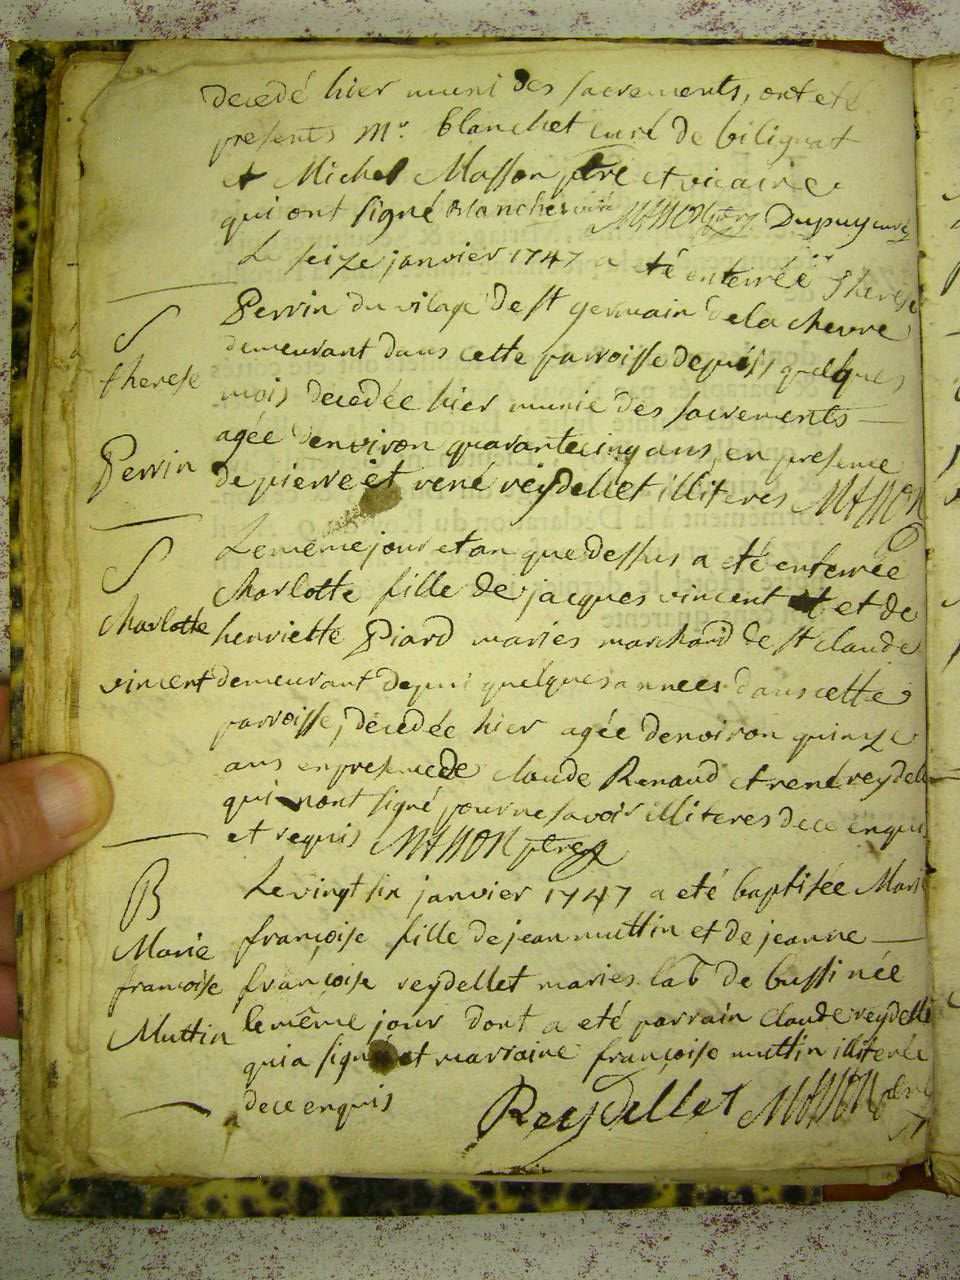 decedé hier muni des sacrements, ont eté
presents Mr. blanchet curé de bilignat
et Michel Masson ptre et vicaire
qui ont signé blanchet curé MASSON ptre Dupuy curé
Le seize janvier 1747 a eté enterrée therese
S
therese
Perrin
Perrin du vilage de st germain de la cheure
demeurant dans cette parroisse depuis quelques
mois decedée hier munie des sacrements
agée denviron quarantecinq ans, en presence
de pierre et rené reydellet illiteres MASSON
S
Charlotte
vincent
Le meme jour et an que dessus a eté enterrée
Charlotte fille de jacques vincent et de
henriette Piard maries marchand de st Claude
demeurant depui quelques annees dans cette
parroisse, decedée hier agée denviron quinze
ans en presence de claude Renaud et rené reydell
qui nont signé pour ne savoir illiteres de ce enqui
et requis MASSON ptre
B
Marie
françoise
Muttin
Le vingt six janvier 1747 a eté baptisée Mari
françoise fille de jean muttin et de jeanne
françoise reydellet maries lab de bussi née
le même jour dont a eté parrain claude reydelle
qui a signé et marraine françoise muttin illiterée
de ce enquis
Reydellet MASSON ptre